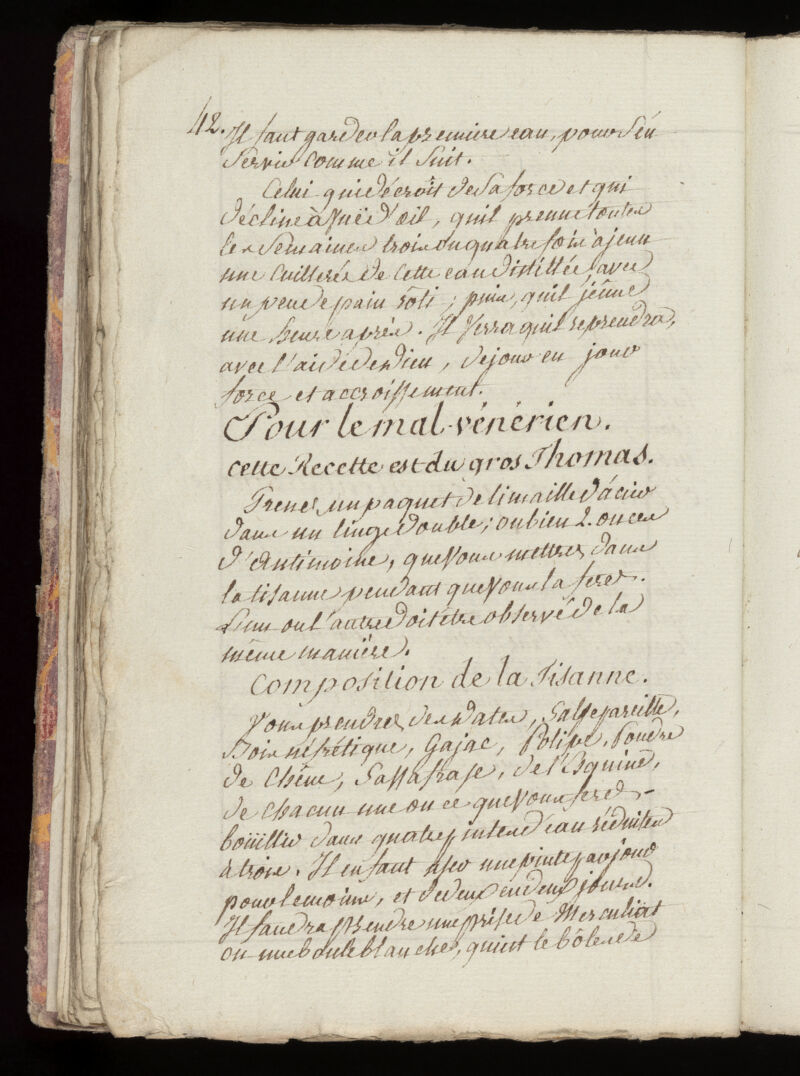 42. Il faut garder la premiere eau, pour s'én
servir comme il suit.
Celui qui décroît de sa force et qui
décline à vuë d'œil, quil prenne toutes
les semaines trois ou quatre fois à jeun
une cuillerée de cette eau distillée avec
un peu de pain rôti; puis, quil jeûne
une heure après. Il verra quil reprendra,
avec l'aide de Dieu, de jour en jour
force et accroissement.
Pour le mal-vénérien.
cette Recette est du gros Thomas.
Prenez un paquet de limaille d'acier
dans un linge double; ou bien 2. onces
d'Antimoine, que vous mettrez dans
la tisanne pendant que vous la ferez.
L'un ou l'autre doit être observé de la
même manière.
Composition de la Tisanne.
Vous prendrez des dates, Salsepareille,
Bois néfrétique, Gajac, Polipe, Poudre
de Chêne, Sassafrase, de l'Esquine,
de chacun une once que vous ferez
bouillir dans quatre pintes d'eau réduites
à trois. Il en faut user une pinte par jour
pour le moins, et de deux en deux jours.
Il faudra prendre une prise de
ou une boule blanche, qui est le